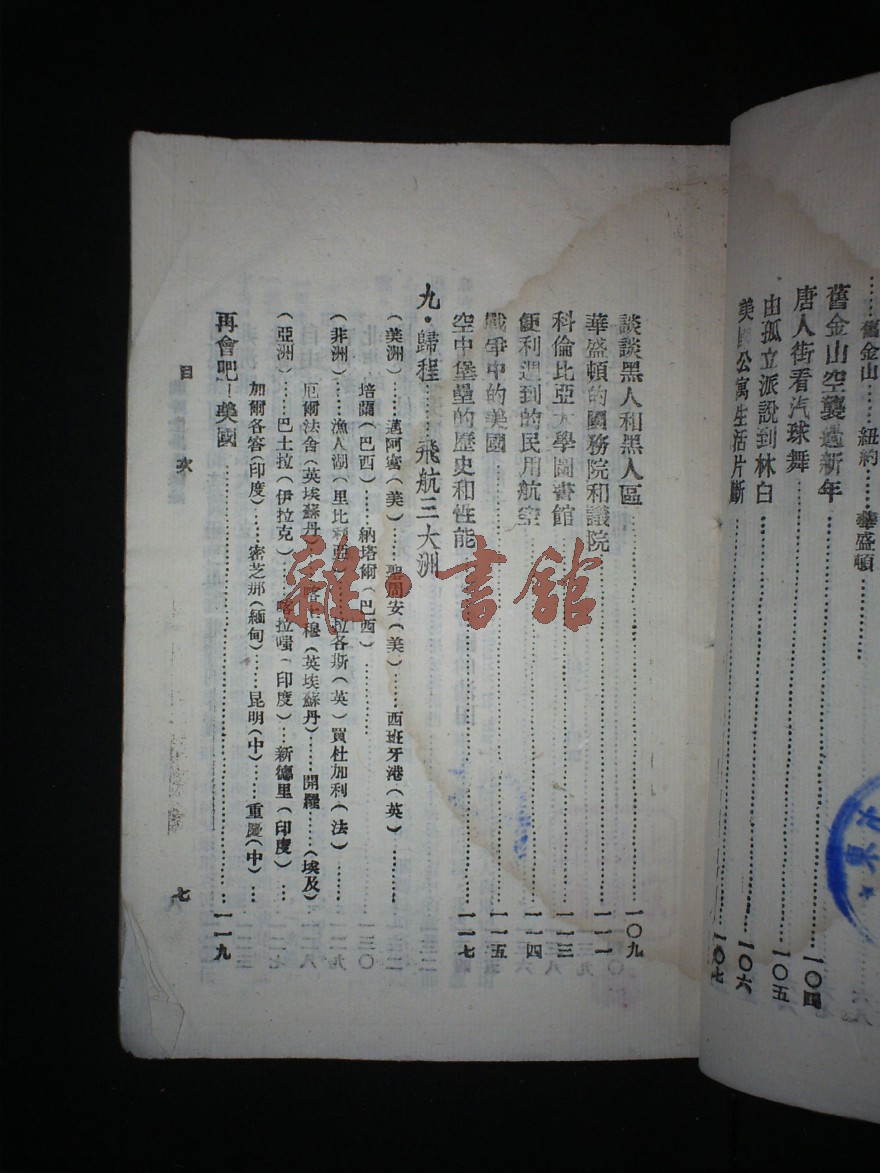 ……舊金山……紐約……華盛頓……
舊金山空襲過新年……一〇四
唐人街看汽球舞……一〇五
由孤立派說到林白……一〇六
美國公寓生活片斷……一〇七
談談黑人和黑人區……一〇九
華盛頓的國務院和議院……一一一
科倫比亞大學圖書館……一一三
便利週到的民用航空……一一四
戰爭中的美國……一一五
空中堡壘的歷史和性能……一一七
九・歸程……飛航三大洲
(美洲)……邁阿蜜(美)……聖周安(美)……西班牙港(英)……
培蘭(巴西)……納塔爾(巴西)……
(非洲)……漁人湖(里比利亞)……拉各斯(英)買杜加利(法)……
厄爾法舍(英埃蘇丹)……喀土穆(英埃蘇丹)……開羅……(埃及)
(亞洲)……巴士拉(伊拉克)……喀拉嗤(印度)……新德里(印度)……
加爾各答(印度)……密芝那(緬甸)……昆明(中)……重慶(中)……
再會吧—美國……一一九
目 次
七
雜・書館